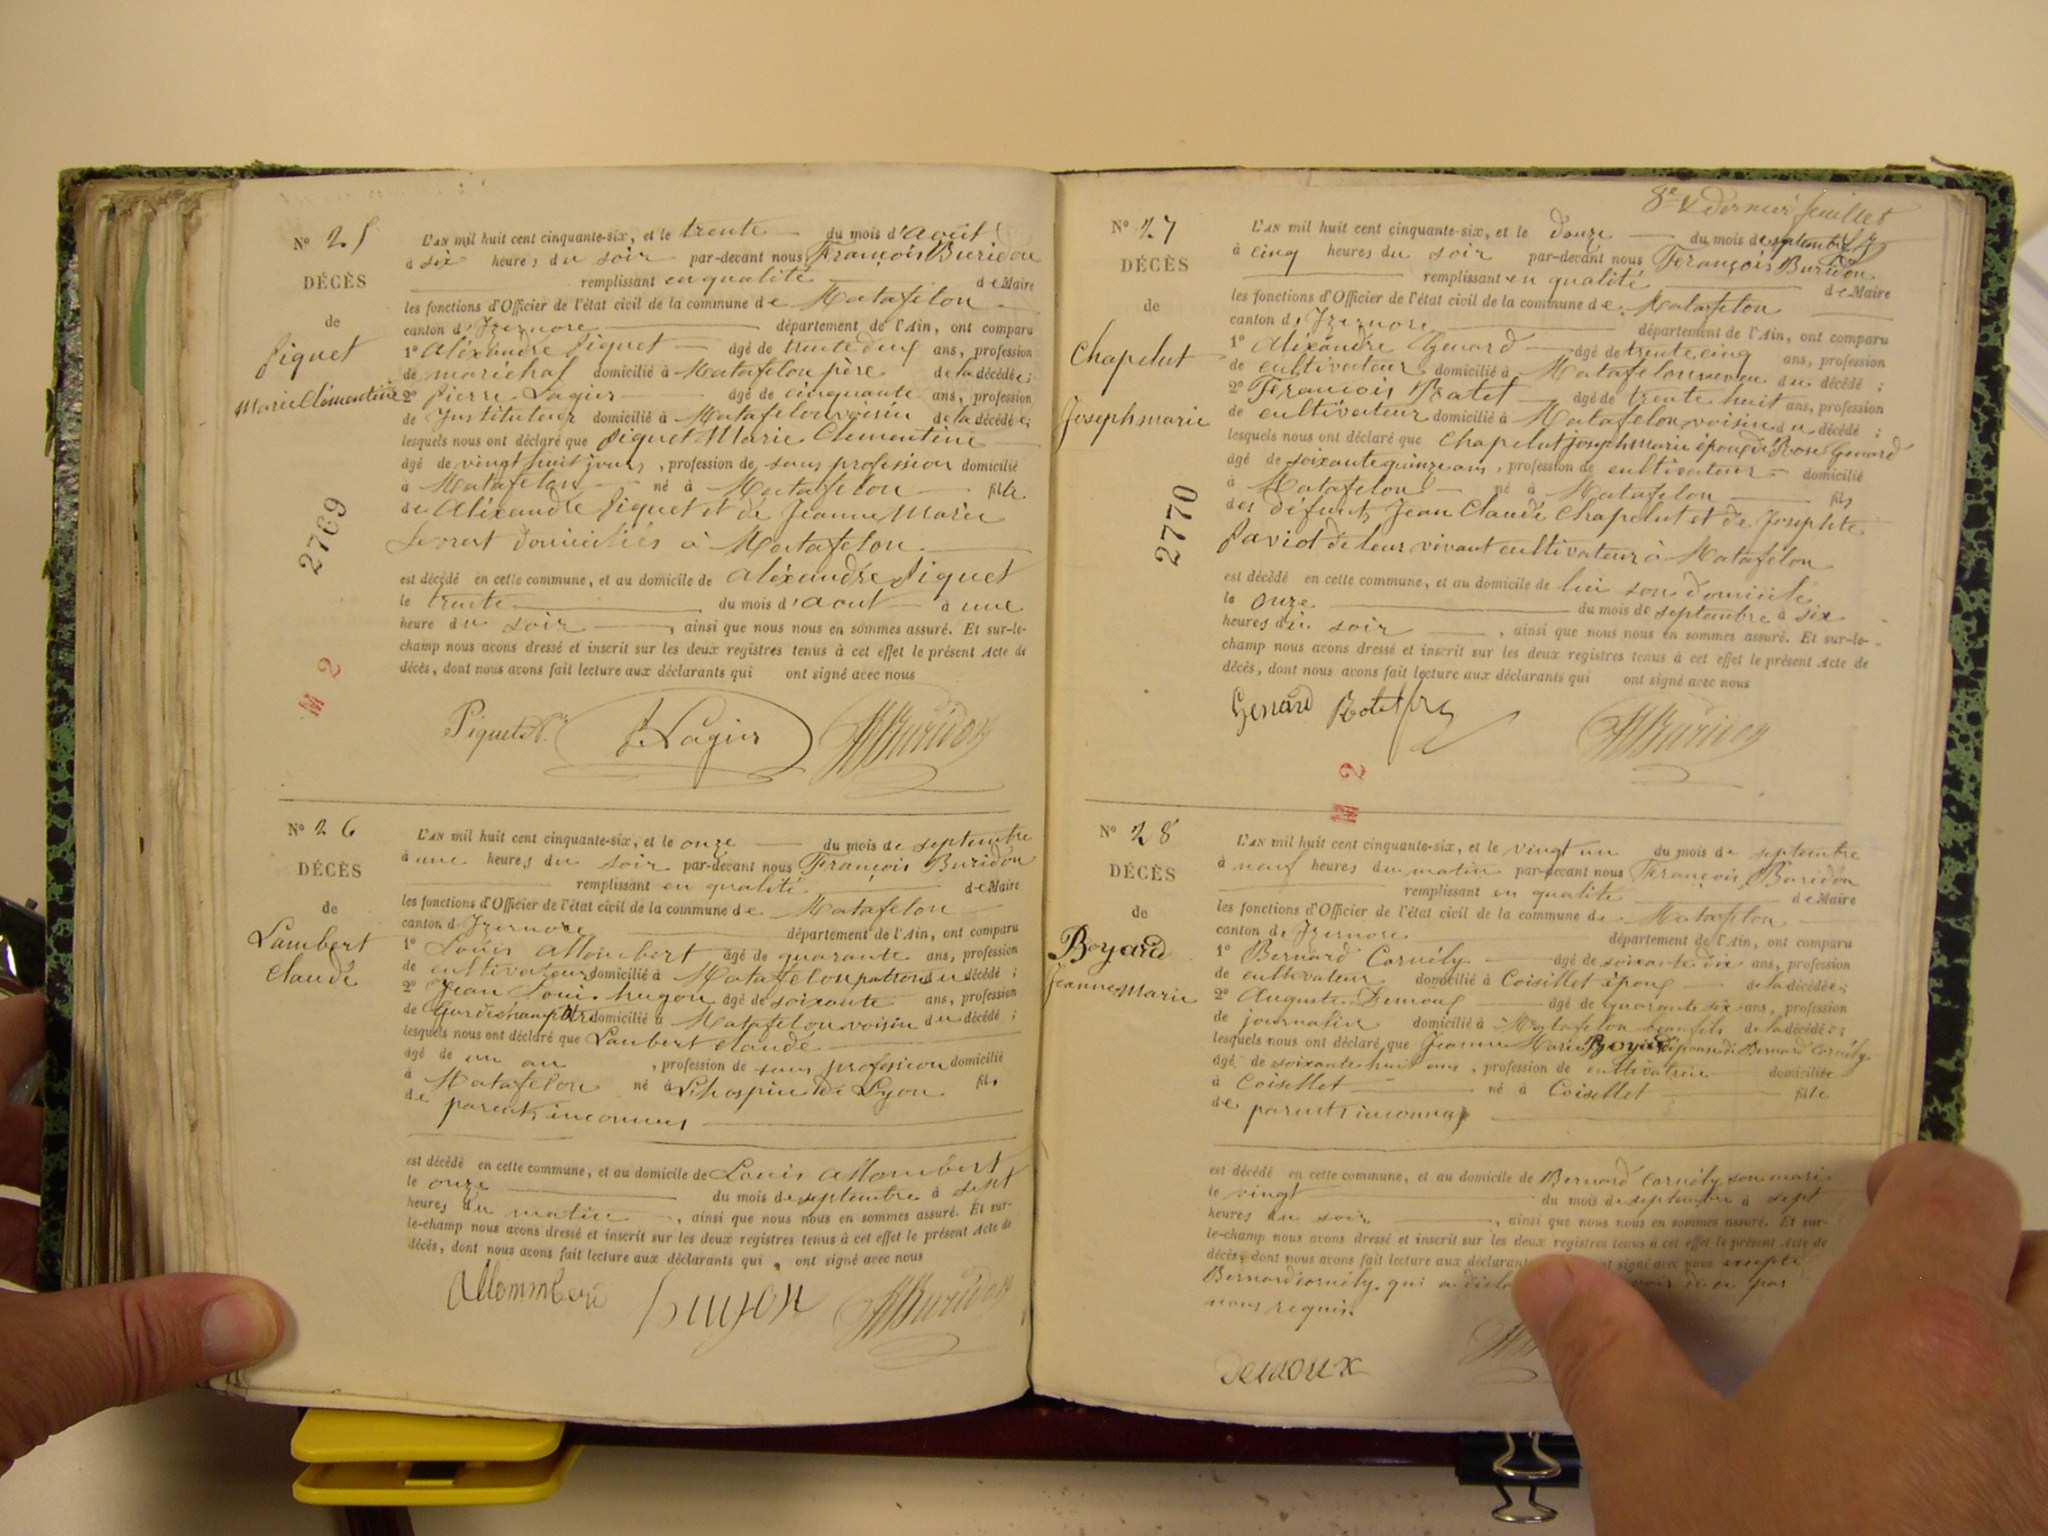 N° 25
DÉCÈS
de
Piquet
Marie Clémentine
2769
M 2
L'AN mil huit cent cinquante-six, et le trente du mois d'août
à six heures du soir par-devant nous François Buridon
remplissant en qualité de Maire
les fonctions d'Officier de l'état civil de la commune de Matafelon
canton d'Izernore département de l'Ain, ont comparu
1° Aléxandre Piquet âgé de trente deux ans, profession
de maréchal domicilié à Matafelon père de la décédée;
2° Pierre Lagier âgé de cinquante ans, profession
de Instituteur domicilié à Matafelon voisin de la décédée;
lesquels nous ont déclaré que Piquet Marie Clementine
âgé de vingt huit jours, profession de sans profession domicilié
à Matafelon né à Matafelon fille
de Aléxandre Piquet et de Jeanne Marie
domiciliés à Matafelon
est décédé en cette commune, et au domicile de Aléxandre Piquet
le trente du mois d'aout à une
heure du soir, ainsi que nous nous en sommes assuré. Et sur-le-
champ nous avons dressé et inscrit sur les deux registres tenus à cet effet le présent Acte de
décès, dont nous avons fait lecture aux déclarants qui ont signé avec nous
Piquet Lagier Buridon
N° 26
DÉCÈS
de
Lambert
Claude
L'AN mil huit cent cinquante-six, et le onze du mois de septembre
à une heures du soir par-devant nous François Buridon
remplissant en qualité de Maire
les fonctions d'Officier de l'état civil de la commune de Matafelon
canton d'Izernore département de l'Ain, ont comparu
1° Louis Allombert âgé de quarante ans, profession
de cultivateur domicilié à Matafelon patron du décédé;
2° Jean Louis hugon âgé de soixante ans, profession
de Gardechampêtre domicilié à Matafelon voisin du décédé;
lesquels nous ont déclaré que Lambert claude
âgé de un an, profession de sans profession domicilié
à Matafelon né à L'hospice de Lyon fils
de parents inconnus
est décédé en cette commune, et au domicile de Louis Allombert
le onze du mois de septembre à sept
heures du matin, ainsi que nous nous en sommes assuré. Et sur-
le-champ nous avons dressé et inscrit sur les deux registres tenus à cet effet le présent Acte de
décès, dont nous avons fait lecture aux déclarants qui, ont signé avec nous
Allombert hugon Buridon
8e & dernier feuillet
N° 27
DÉCÈS
de
Chapelut
Joseph marie
2770
M 2
L'AN mil huit cent cinquante-six, et le douze du mois de septembre
à cinq heures du soir par-devant nous François Buridon
remplissant en qualité de Maire
les fonctions d'Officier de l'état civil de la commune de Matafelon
canton d'Izernore département de l'Ain, ont comparu
1° Aléxandre Genard âgé de trente cinq ans, profession
de cultivateur domicilié à Matafelon neveu du décédé;
2° François Ratet âgé de trente huit ans, profession
de cultivateur domicilié à Matafelon voisin du décédé;
lesquels nous ont déclaré que Chapelut Joseph Marie époux de Rose Genard
âgé de soixante quinze ans, profession de cultivateur domicilié
à Matafelon né à Matafelon fils
des défunts Jean Claude Chapelut et de Josephte
Paviot de leur vivant cultivateur à Matafelon
est décédé en cette commune, et au domicile de lui son domicile
le onze du mois de septembre à six
heures du soir, ainsi que nous nous en sommes assuré. Et sur-le-
champ nous avons dressé et inscrit sur les deux registres tenus à cet effet le présent Acte de
décès, dont nous avons fait lecture aux déclarants qui ont signé avec nous
Genard Ratet Buridon
N° 28
DÉCÈS
de
Boyard
Jeanne Marie
L'AN mil huit cent cinquante-six, et le vingt un du mois de septembre
à neuf heures du matin par-devant nous François Buridon
remplissant en qualité de Maire
les fonctions d'Officier de l'état civil de la commune de Matafelon
canton d'Izernore département de l'Ain, ont comparu
1° Bernard Cornély âgé de soixante dix ans, profession
de cultivateur domicilié à Coisellet époux de la décédée;
2° Auguste Demoux âgé de quarante six ans, profession
de journalier domicilié à Matafelon beaufils de la décédée;
lesquels nous ont déclaré que Jeanne Marie Boyard épouse de Bernard Cornély
âgé de soixante huit ans, profession de cultivatrice domiciliée
à Coisellet né à Coisellet fille
de parents inconnus
est décédé en cette commune, et au domicile de Bernard Cornély son mari
le vingt du mois de septembre à sept
heures du soir, ainsi que nous nous en sommes assuré. Et sur-
le-champ nous avons dressé et inscrit sur les deux registres tenus à cet effet le présent Acte de
décès, dont nous avons fait lecture aux déclarants signé avec nous excepté
Bernard Cornély qui a par
nous requis.
demoux